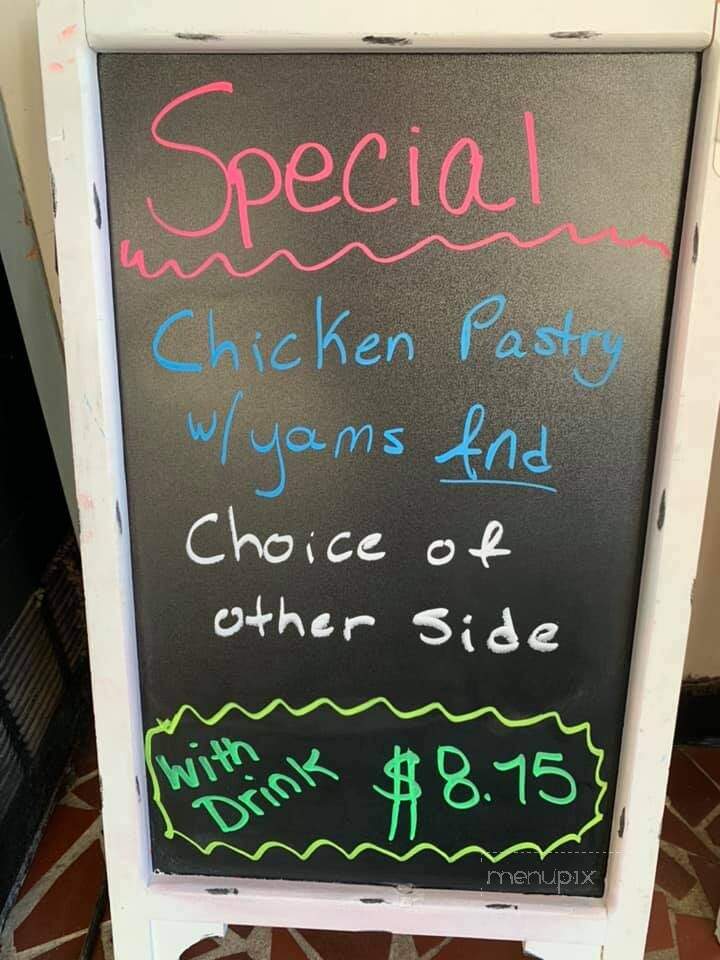 Special
Chicken Pastry
w/yams And
Choice of
other Side
With
Drink $8.75
menupix